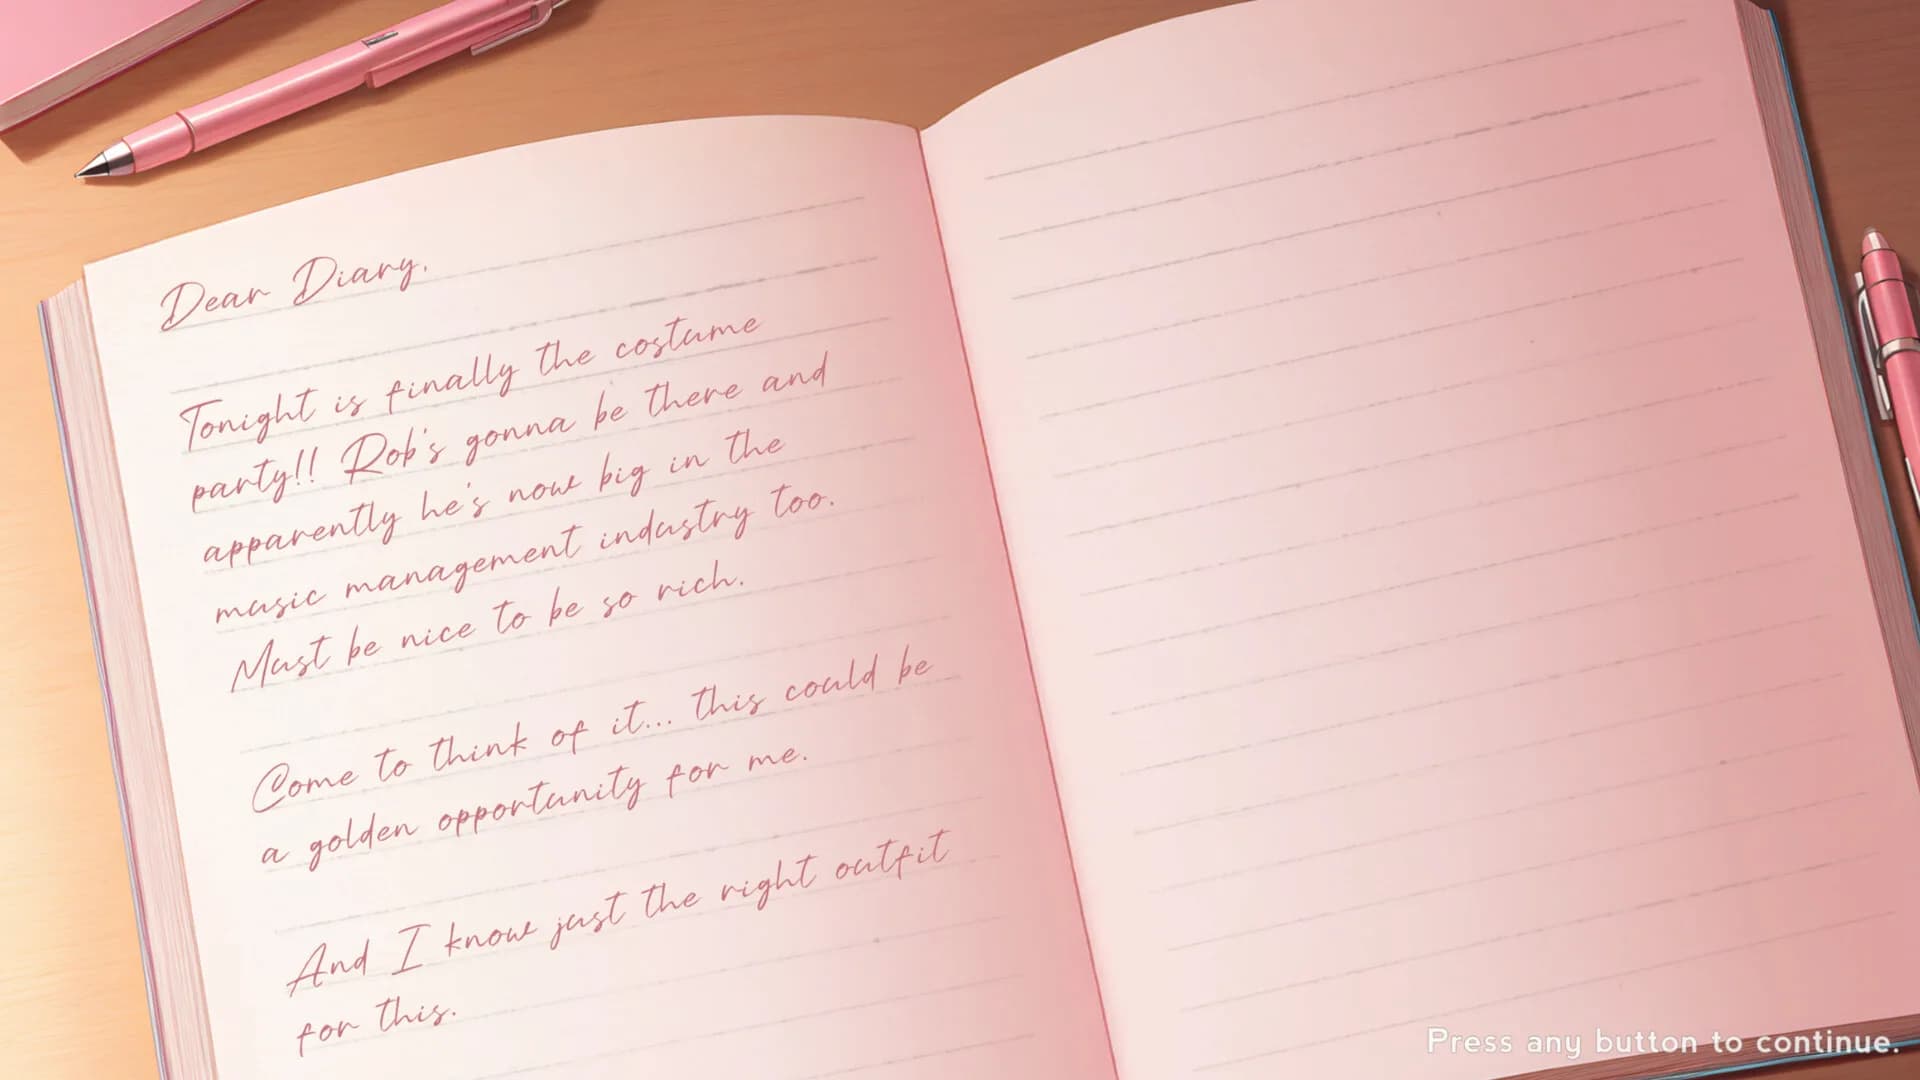 Dear Diary,
Tonight is finally the costume
party!! Rob's gonna be there and
apparently he's now big in the
music management industry too.
Must be nice to be so rich.
Come to think of it... this could be
a golden opportunity for me.
And I know just the right outfit
for this.
Press any button to continue.